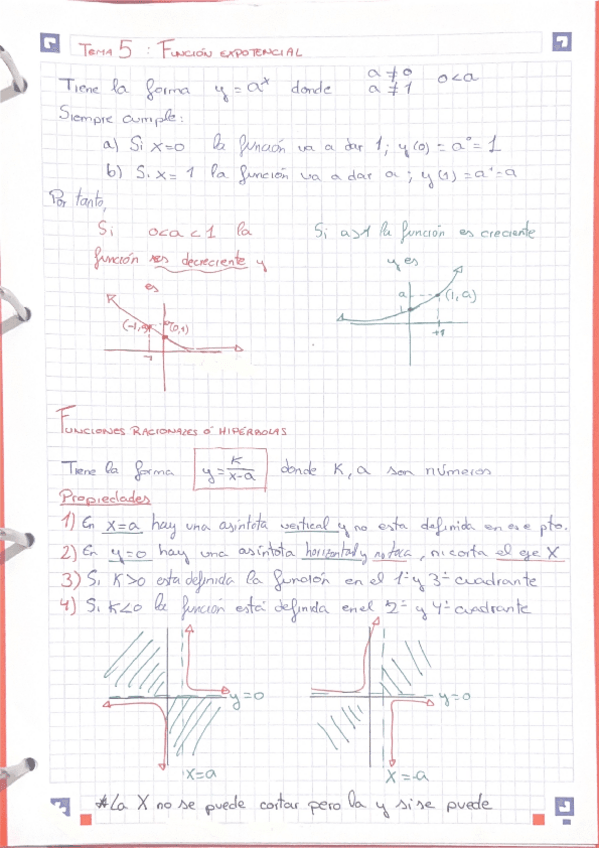 TEMA 5 : FUNCIÓN EXPOTENCIAL
Tiene la forma y = aˣ donde a ≠ 0 a ≠ 1 0<a
Siempre cumple:
a) Si x=0 la función va a dar 1; y(0) = a⁰ = 1
b) Si x= 1 la función va a dar a ; y(1) = a¹ = a
Por tanto,
Si 0<a<1 la
función es decreciente y
es
(0,1)
-1
Si a>1 la función es creciente
y es
a
1
(1,a)
+1
FUNCIONES RACIONALES Ó HIPÉRBOLAS
Tiene la forma y = K/x-a donde K, a son números
Propiedades
1) En x=a hay una asíntota vertical y no esta definida en ese pto.
2) En y=0 hay una asíntota horizontal y no toca, ni corta el eje X
3) Si K>0 esta definida la función en el 1º y 3º cuadrante
4) Si K<0 la función está definida en el 2º y 4º cuadrante
y=0
x=a
y=0
x=-a
*La X no se puede cortar pero la y si se puede